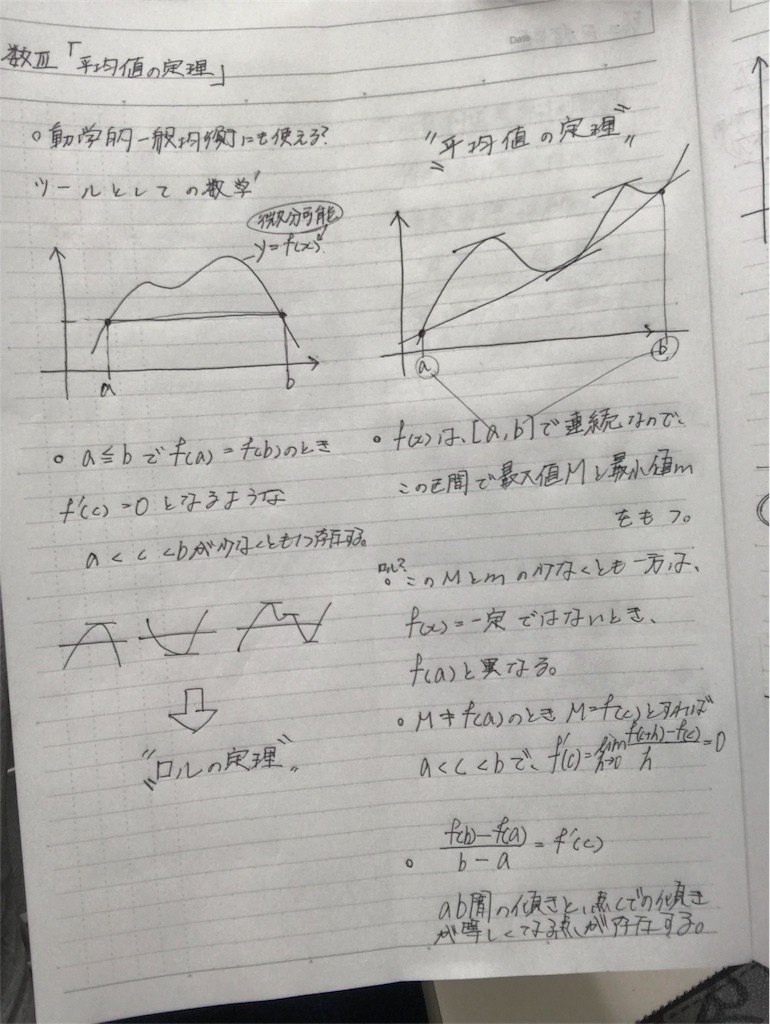 数Ⅲ「平均値の定理」
○動学的一般均衡にも使える?
ツールとしての数学
微分可能
y=f(x)
a
b
○ a≦bでf(a)=f(b)のとき
f'(c)=0となるような
a<c<bが少なくとも1つ存在する。
"ロルの定理"
"平均値の定理"
a
b
○ f(x)は、[a,b]で連続なので、
この区間で最大値Mと最小値m
をもつ。
ロル?
○このMとmの少なくとも一方は、
f(x)=一定ではないとき、
f(a)と異なる。
○ M≠f(a)のとき M=f(c)とすれば
a<c<bで、f'(c)=lim h→0 f(c+h)-f(c)/h=0
○ f(b)-f(a)/b-a=f'(c)
ab間の傾きと、点cでの傾き
が等しくなる点が存在する。